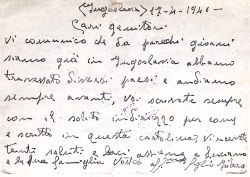 (Jugoslavia) 17-4-1941-
Cari genitori
Vi comunico che da parecchi giorni
siamo già in Jugoslavia abbiamo
traversato diversi paesi e andiamo
sempre avanti, voi scrivete sempre
con il solito indirizzo per come
è scritto in questa cartolina, vi
tanti saluti e baci assieme a Luciano
e famiglia vostro figlio